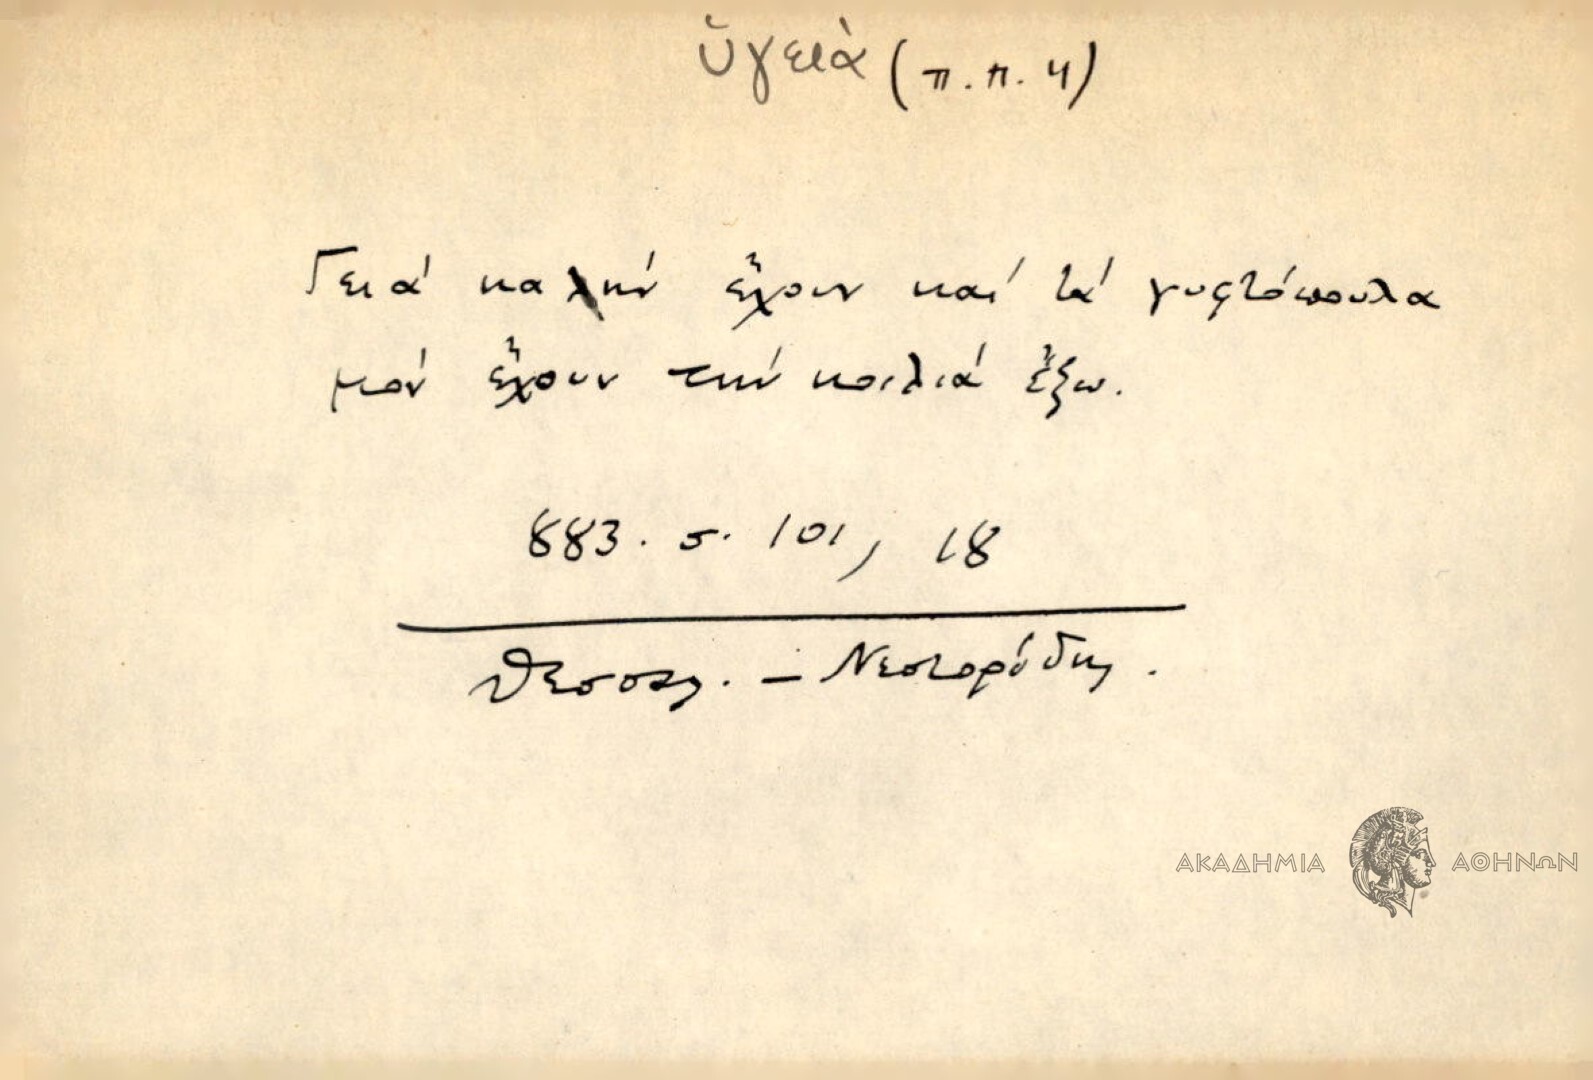 ὑγειὰ (π.π. 4)
Γειά καλήν ἔχουν καί τά γυφτόπουλα
μόν ἔχουν τήν κοιλιά ἔξω.
883. σ. 101, 18
Θεσσαλ. – Νεστορίδης.
ΑΚΑΔΗΜΙΑ ΑΘΗΝΩΝ